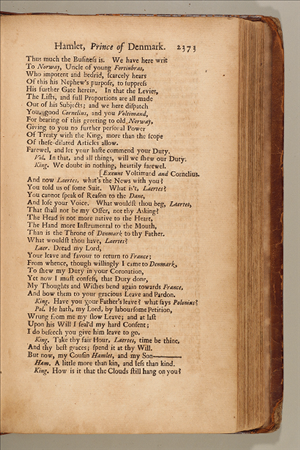 Hamlet, Prince of Denmark. 2373
Thus much the Business is. We have here writ
To Norway, Uncle of young Fortinbras,
Who impotent and bedrid, scarcely hears
Of this his Nephew's purpose, to suppress
His further Gate herein. In that the Levies,
The Lists, and full Proportions are all made
Out of his Subjects; and we here dispatch
You good Cornelius, and you Voltemand,
For bearing of this greeting to old Norway,
Giving to you no further personal Power
Of Treaty with the King, more than the scope
Of these dilated Articles allow.
Farewel, and let your haste commend your Duty.
Vol. In that, and all things, will we shew our Duty.
King. We doubt in nothing, heartily farewel.
[Exeunt Voltimand and Cornelius.
And now Laertes, what's the News with you?
You told us of some Suit. What is't, Laertes?
You cannot speak of Reason to the Dane,
And lose your Voice. What wouldst thou beg, Laertes,
That shall not be my Offer, not thy Asking?
The Head is not more native to the Heart,
The Hand more Instrumental to the Mouth,
Than is the Throne of Denmark to thy Father.
What wouldst thou have, Laertes?
Laer. Dread my Lord,
Your leave and favour to return to France;
From whence, though willingly I came to Denmark,
To shew my Duty in your Coronation,
Yet now I must confess, that Duty done,
My Thoughts and Wishes bend again towards France,
And bow them to your gracious Leave and Pardon.
King. Have you your Father's leave? what says Polonius?
Pol. He hath, my Lord, by laboursome Petition,
Wrung from me my slow Leave; and at last
Upon his Will I seal'd my hard Consent;
I do beseech you give him leave to go.
King. Take thy fair Hour, Laertes, time be thine,
And thy best graces; spend it at thy Will.
But now, my Cousin Hamlet, and my Son——
Ham. A little more than kin, and less than kind.
King. How is it that the Clouds still hang on you?